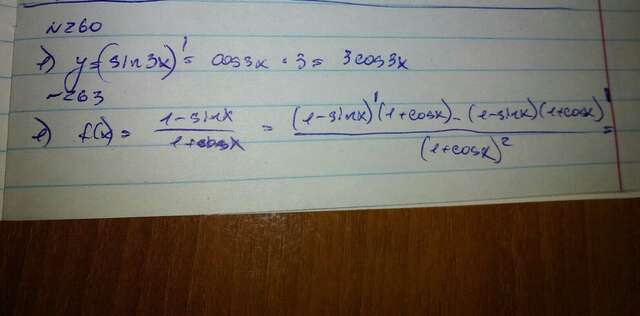 №260
1) y=(sin3x)' = cos3x · 3 = 3cos3x
~263
1) f(x) = \frac{1-sinx}{1+cosx} = \frac{(1-sinx)'(1+cosx)-(1-sinx)(1+cosx)'}{(1+cosx)^2} =